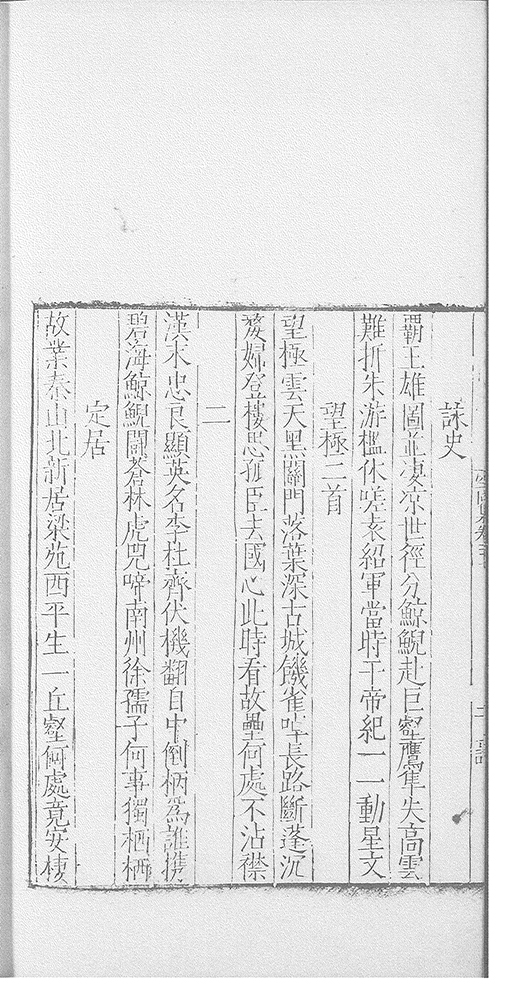 詠史
霸王雄圖並淒凉世徑分鯨鯢赴巨壑鷹隼失高雲
難折朱游檻休嗟袁紹軍當時干帝紀一一動星文
望極二首
望極雲天黑關門落葉深古城饑雀啅長路斷蓬沉
嫠婦登樓思孤臣去國心此時看故壘何處不沾襟
二
漢末忠良顯英名李杜齊伏機翻自中倒柄爲誰携
碧海鯨鯢鬬蒼林虎兕啼南州徐孺子何事獨栖栖
定居
故業泰山北新居梁苑西平生一丘壑何處竟安棲